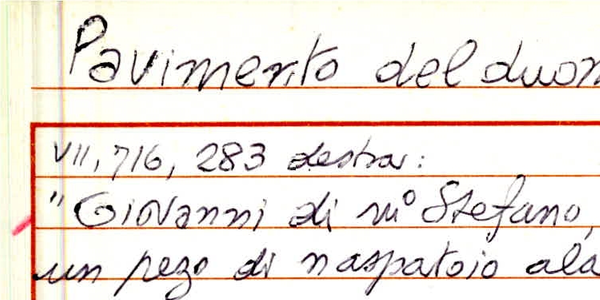 Pavimento del duom
VII, 716, 283 destra:
"Giovanni di mº Stefano,
un pezo di naspatoio ala